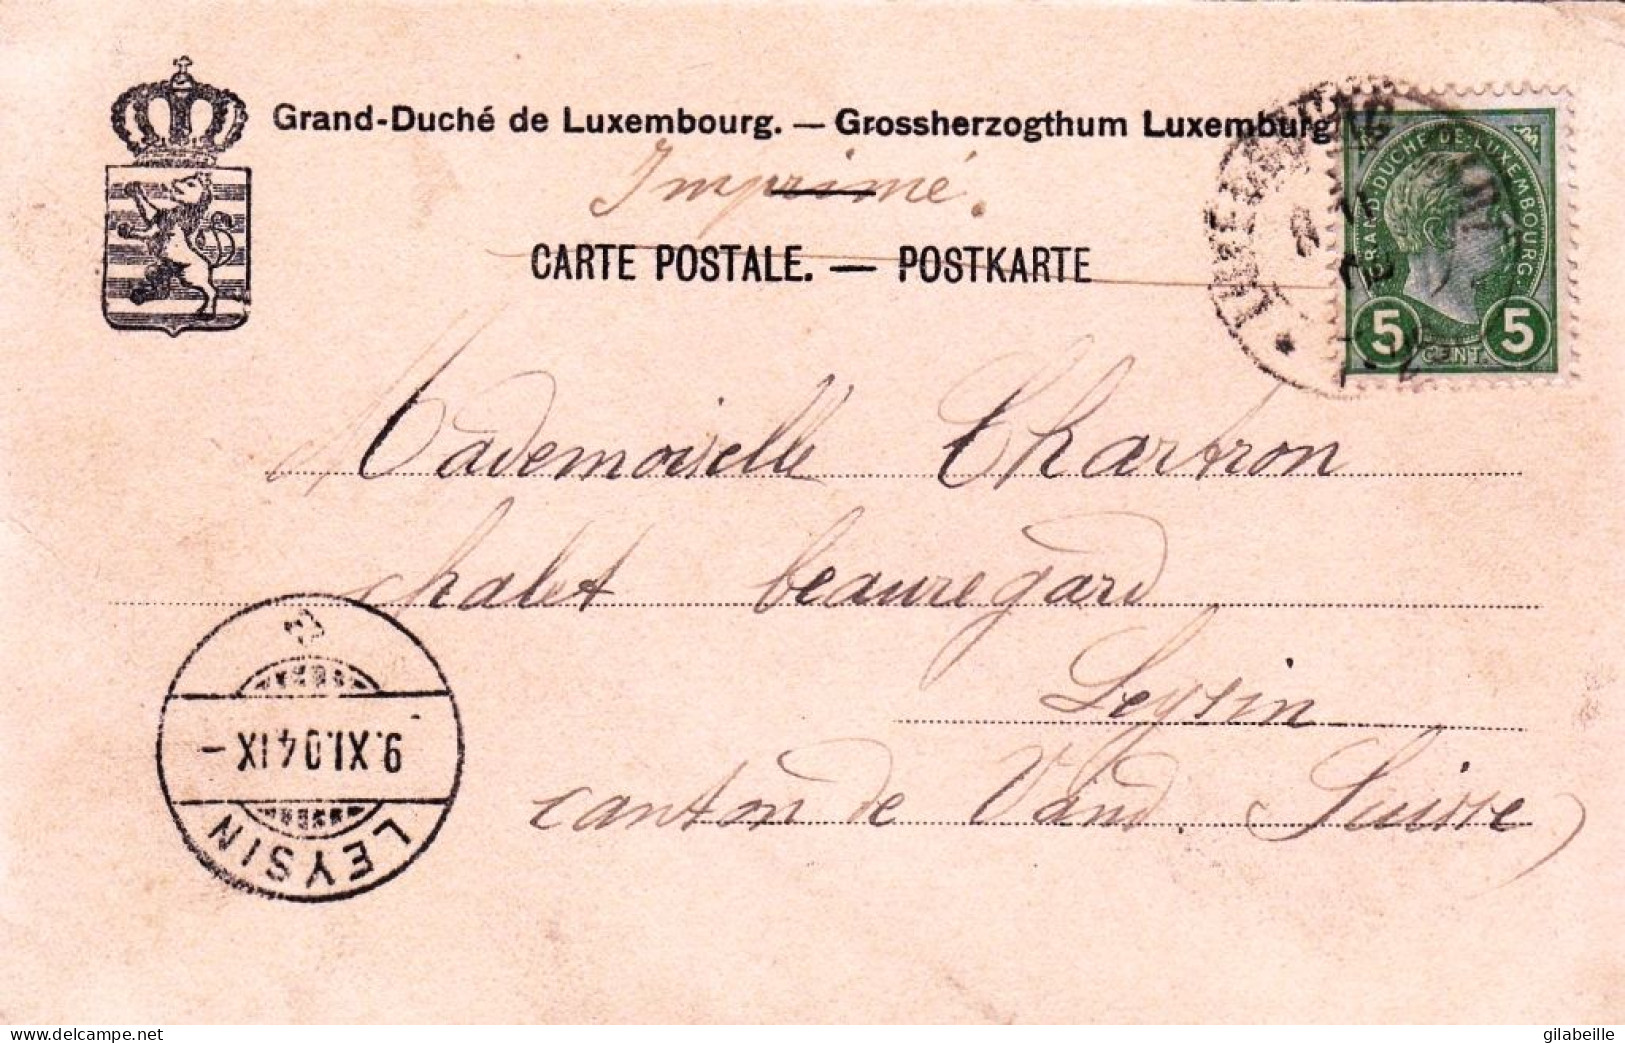 Grand-Duché de Luxembourg. — Grossherzogthum Luxemburg
Imprimé.
CARTE POSTALE. — POSTKARTE
GRAND-DUCHÉ-DE-LUXEMBOURG.
5 5
CENT.
Mademoiselle Chartron
chalet beauregard
Leysin
canton de Vaud. Suisse
9.XI.04 IX –
LEYSIN
www.delcampe.net
gilabeille